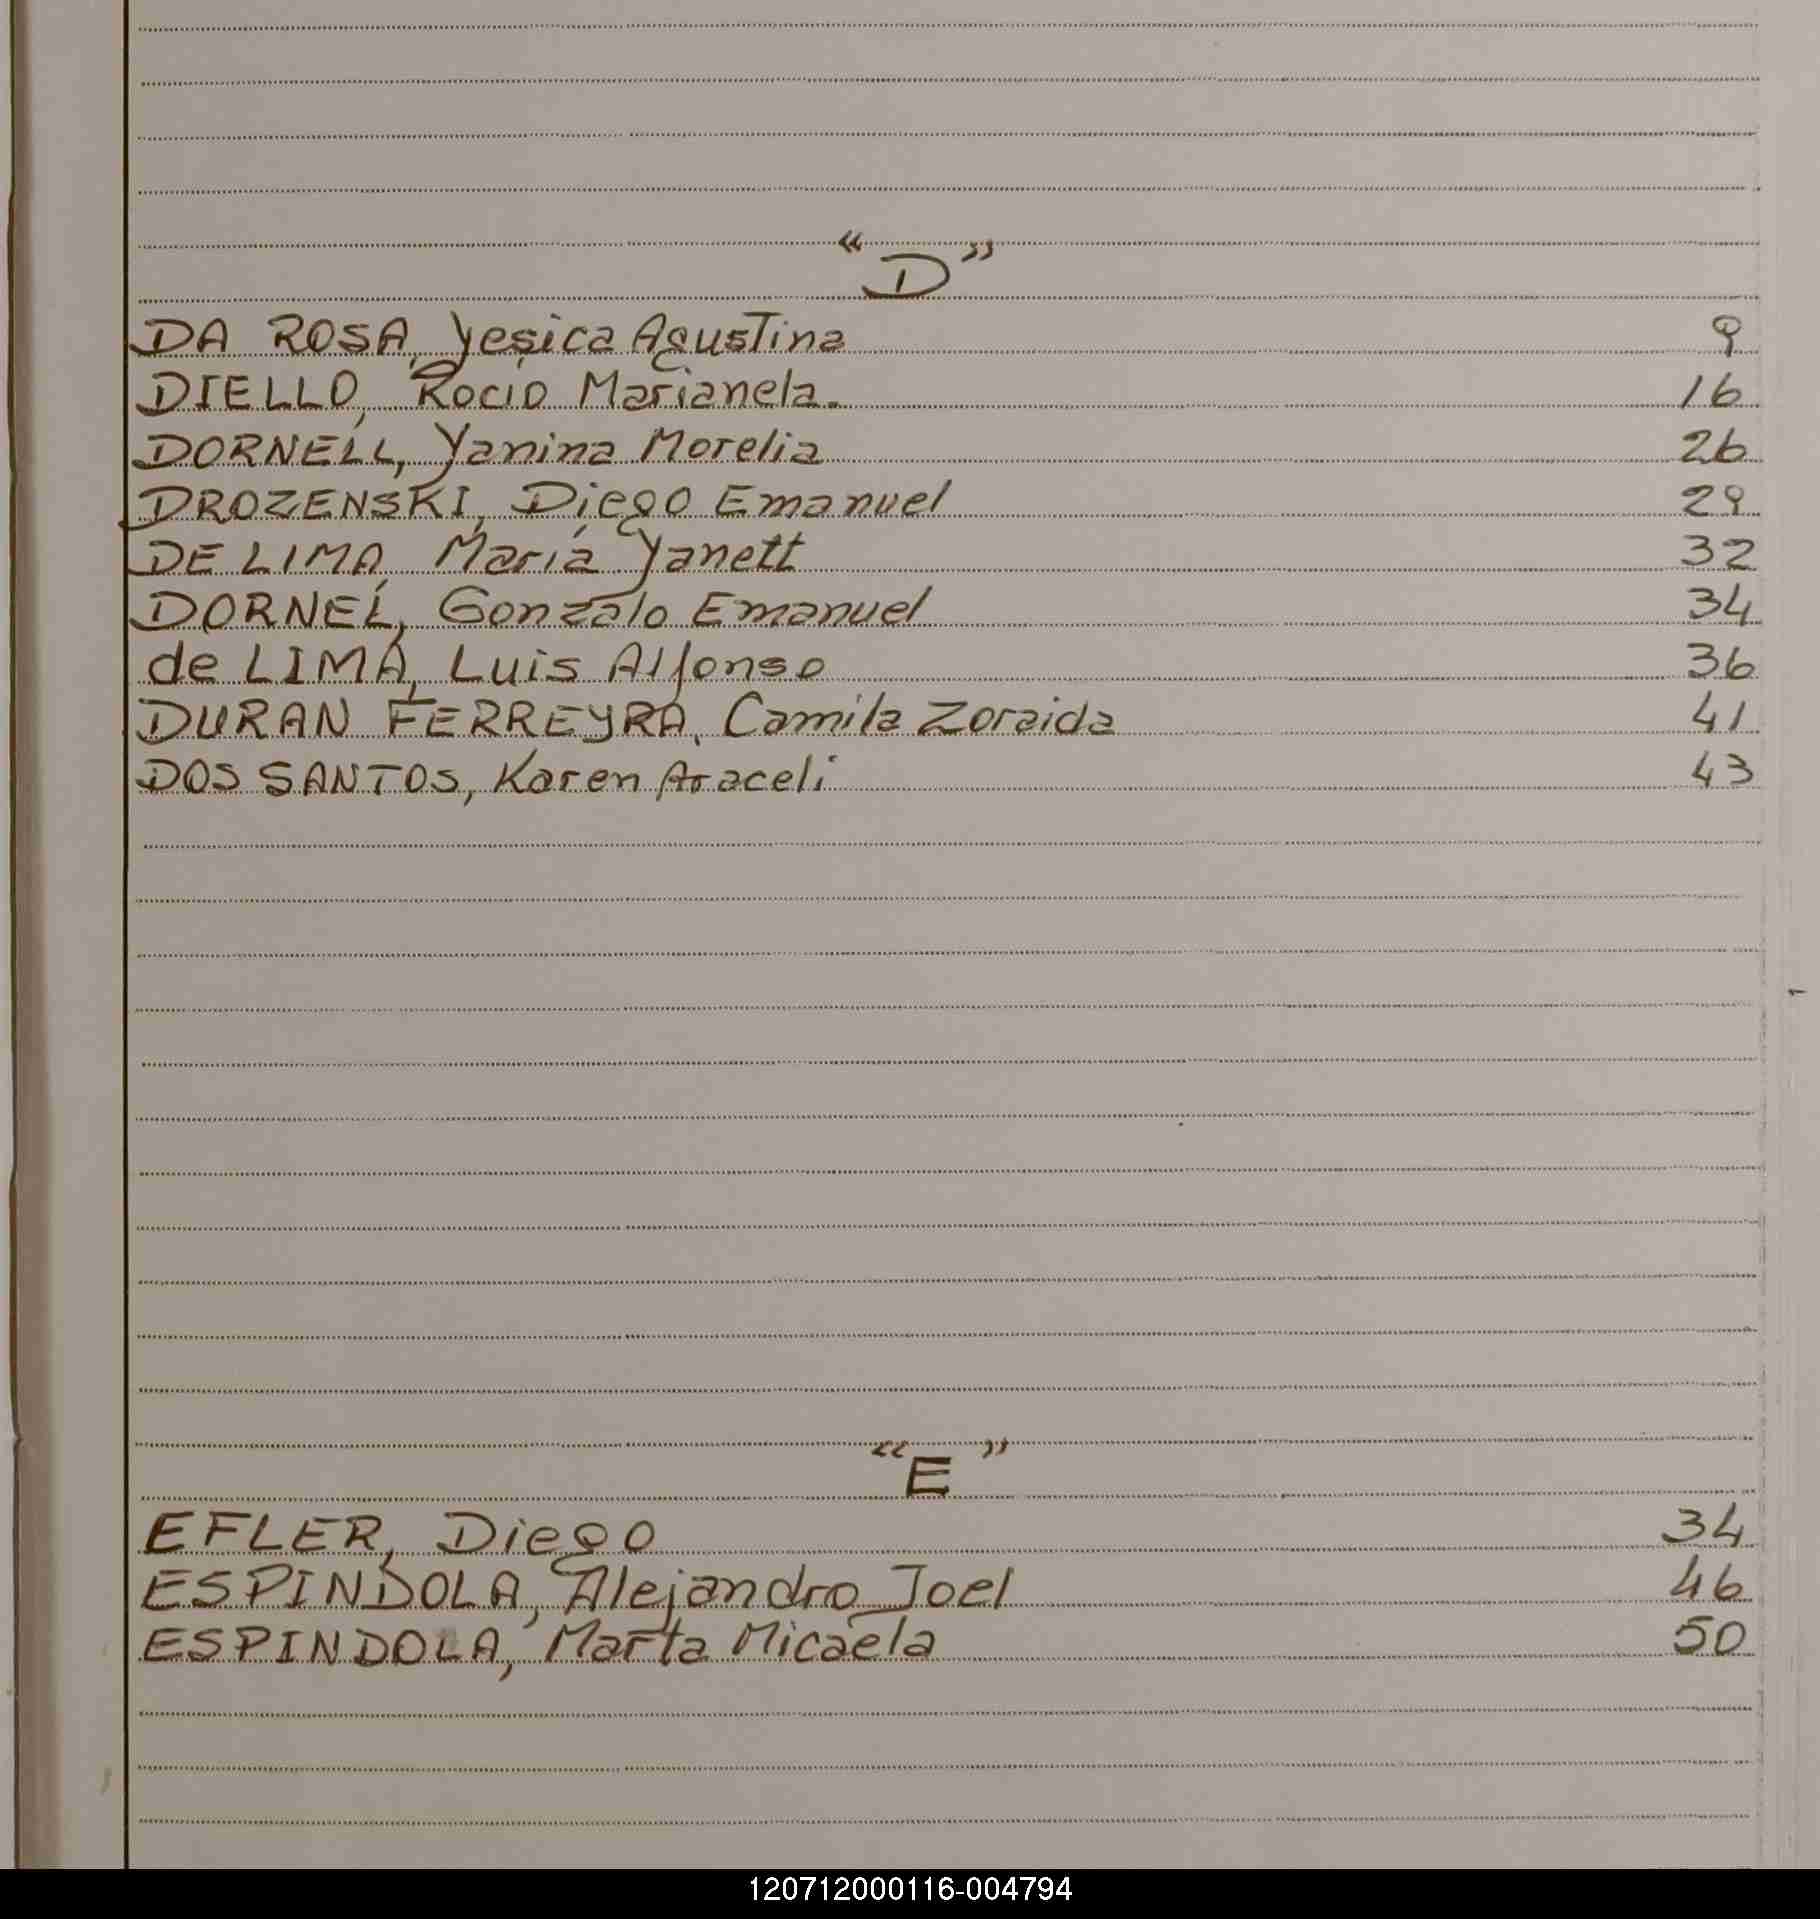 “D”
DA ROSA, Yesica Agustina 9
DIELLO, Rocio Marianela. 16
DORNELL, Yanina Morelia 26
DROZENSKI, Diego Emanuel 29
DE LIMA, María Yanett 32
DORNEL, Gonzalo Emanuel 34
de LIMA, Luis Alfonso 36
DURAN FERREYRA, Camila Zoraida 41
DOS SANTOS, Karen Araceli 43
“E”
EFLER, Diego 34
ESPINDOLA, Alejandro Joel 46
ESPINDOLA, Marta Micaela 50
120712000116-004794